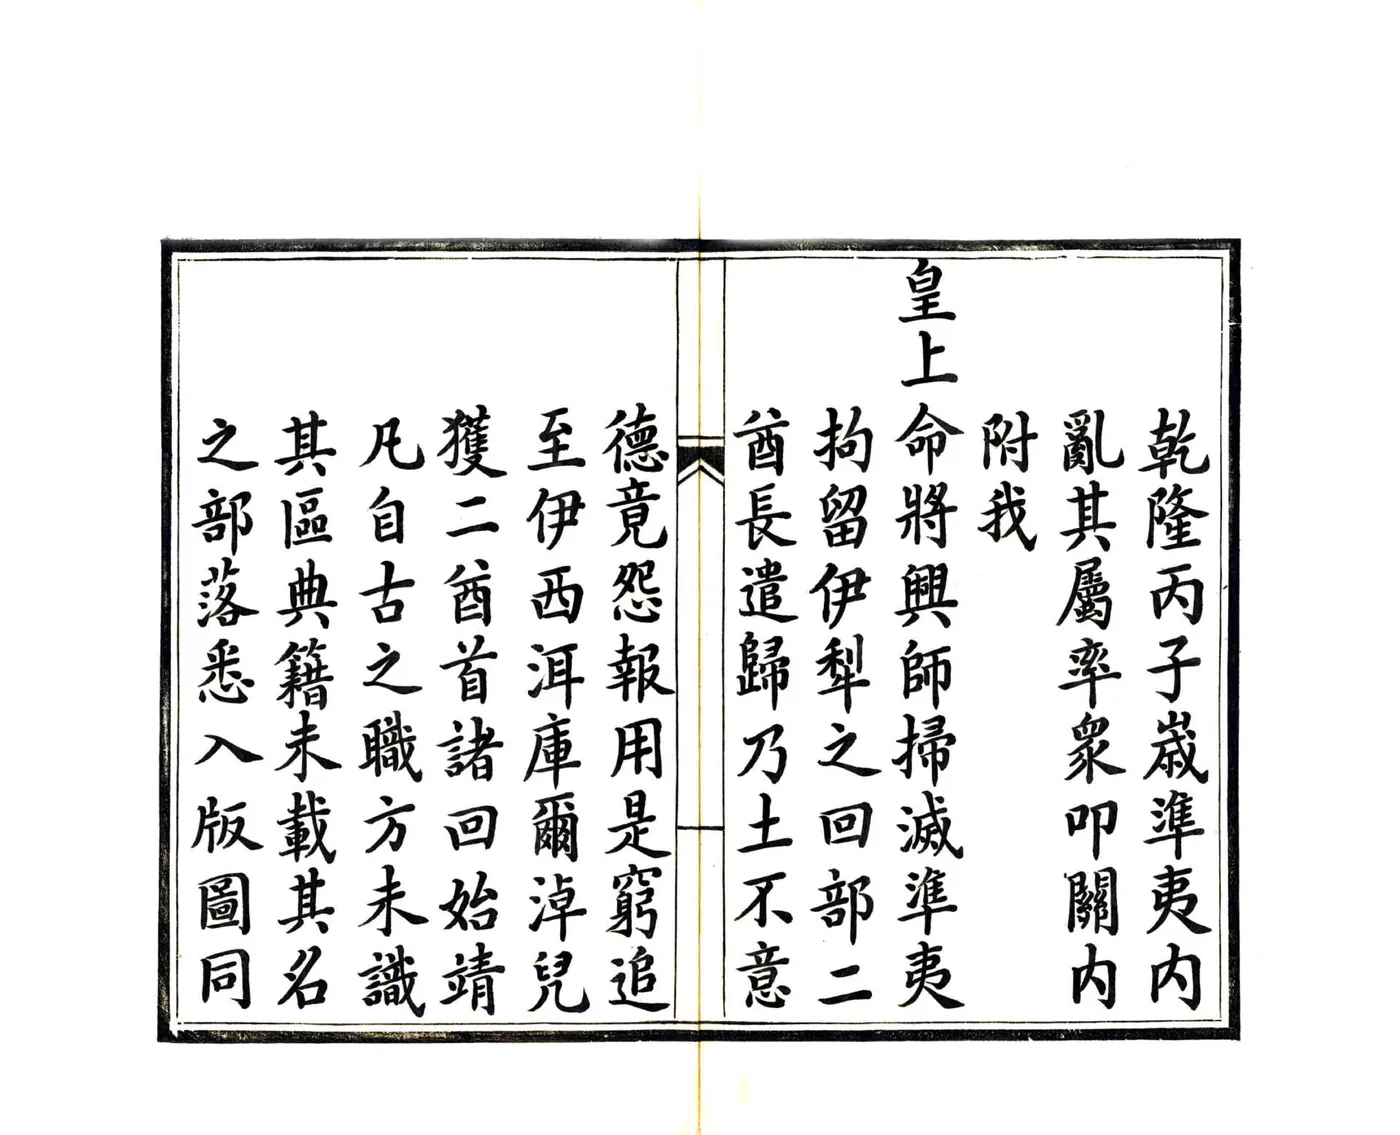 乾隆丙子嵗準夷内
亂其屬率衆叩關内
附我
皇上命將興師掃滅準夷
拘留伊犁之回部二
酋長遣歸乃土不意
德竟怨報用是窮追
至伊西洱庫爾淖兒
獲二酋首諸回始靖
凡自古之職方未識
其區典籍未載其名
之部落悉入版圖同